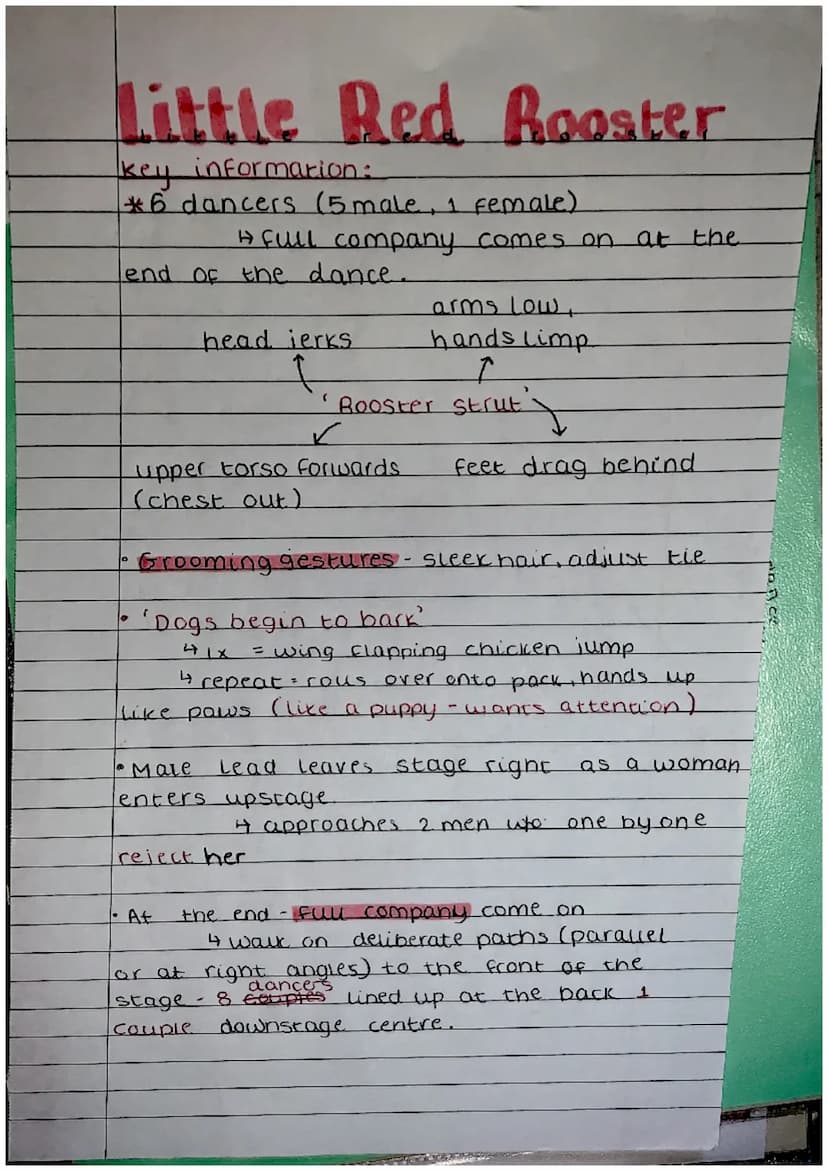 Little Red Rooster
key information:
*6 dancers (5 male, 1 female)
↳ full company comes on at the
end of the dance.
arms low,
head jerks hands limp
'Rooster strut'
upper torso forwards feet drag behind
(chest out)
• Grooming gestures - sleek hair, adjust tie
• 'Dogs begin to bark'
↳ 1x = wing flapping chicken jump
↳ repeat = rolls over onto back, hands up
like paws (like a puppy - wants attention)
• Male lead leaves stage right as a woman
enters upstage
↳ approaches 2 men who one by one
reject her
• At the end - full company come on
↳ walk on deliberate paths (parallel
or at right angles) to the front of the
dancers
stage - 8 couples lined up at the back 1
couple downstage centre.